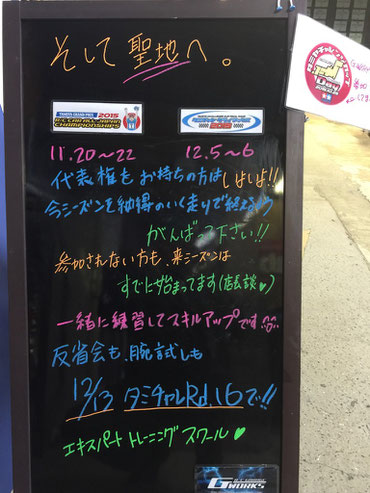 そして聖地へ。
TAMIYA GRAND PRIX 2015
R/C CAR ALL JAPAN
CHAMPIONSHIPS
2015
11.20~22
12.5~6
代表権をお持ちの方は
今シーズンを納得のいく走りで終えるよう
がんばって下さい!!
参加されない方も、来シーズンは
すでに始まってます(店長談♥)
一緒に練習してスキルアップです
反省会も、腕試しも
12/13 タミチャレRd.16で!!
エキスパートトレーニングスクール♥
G WORKS